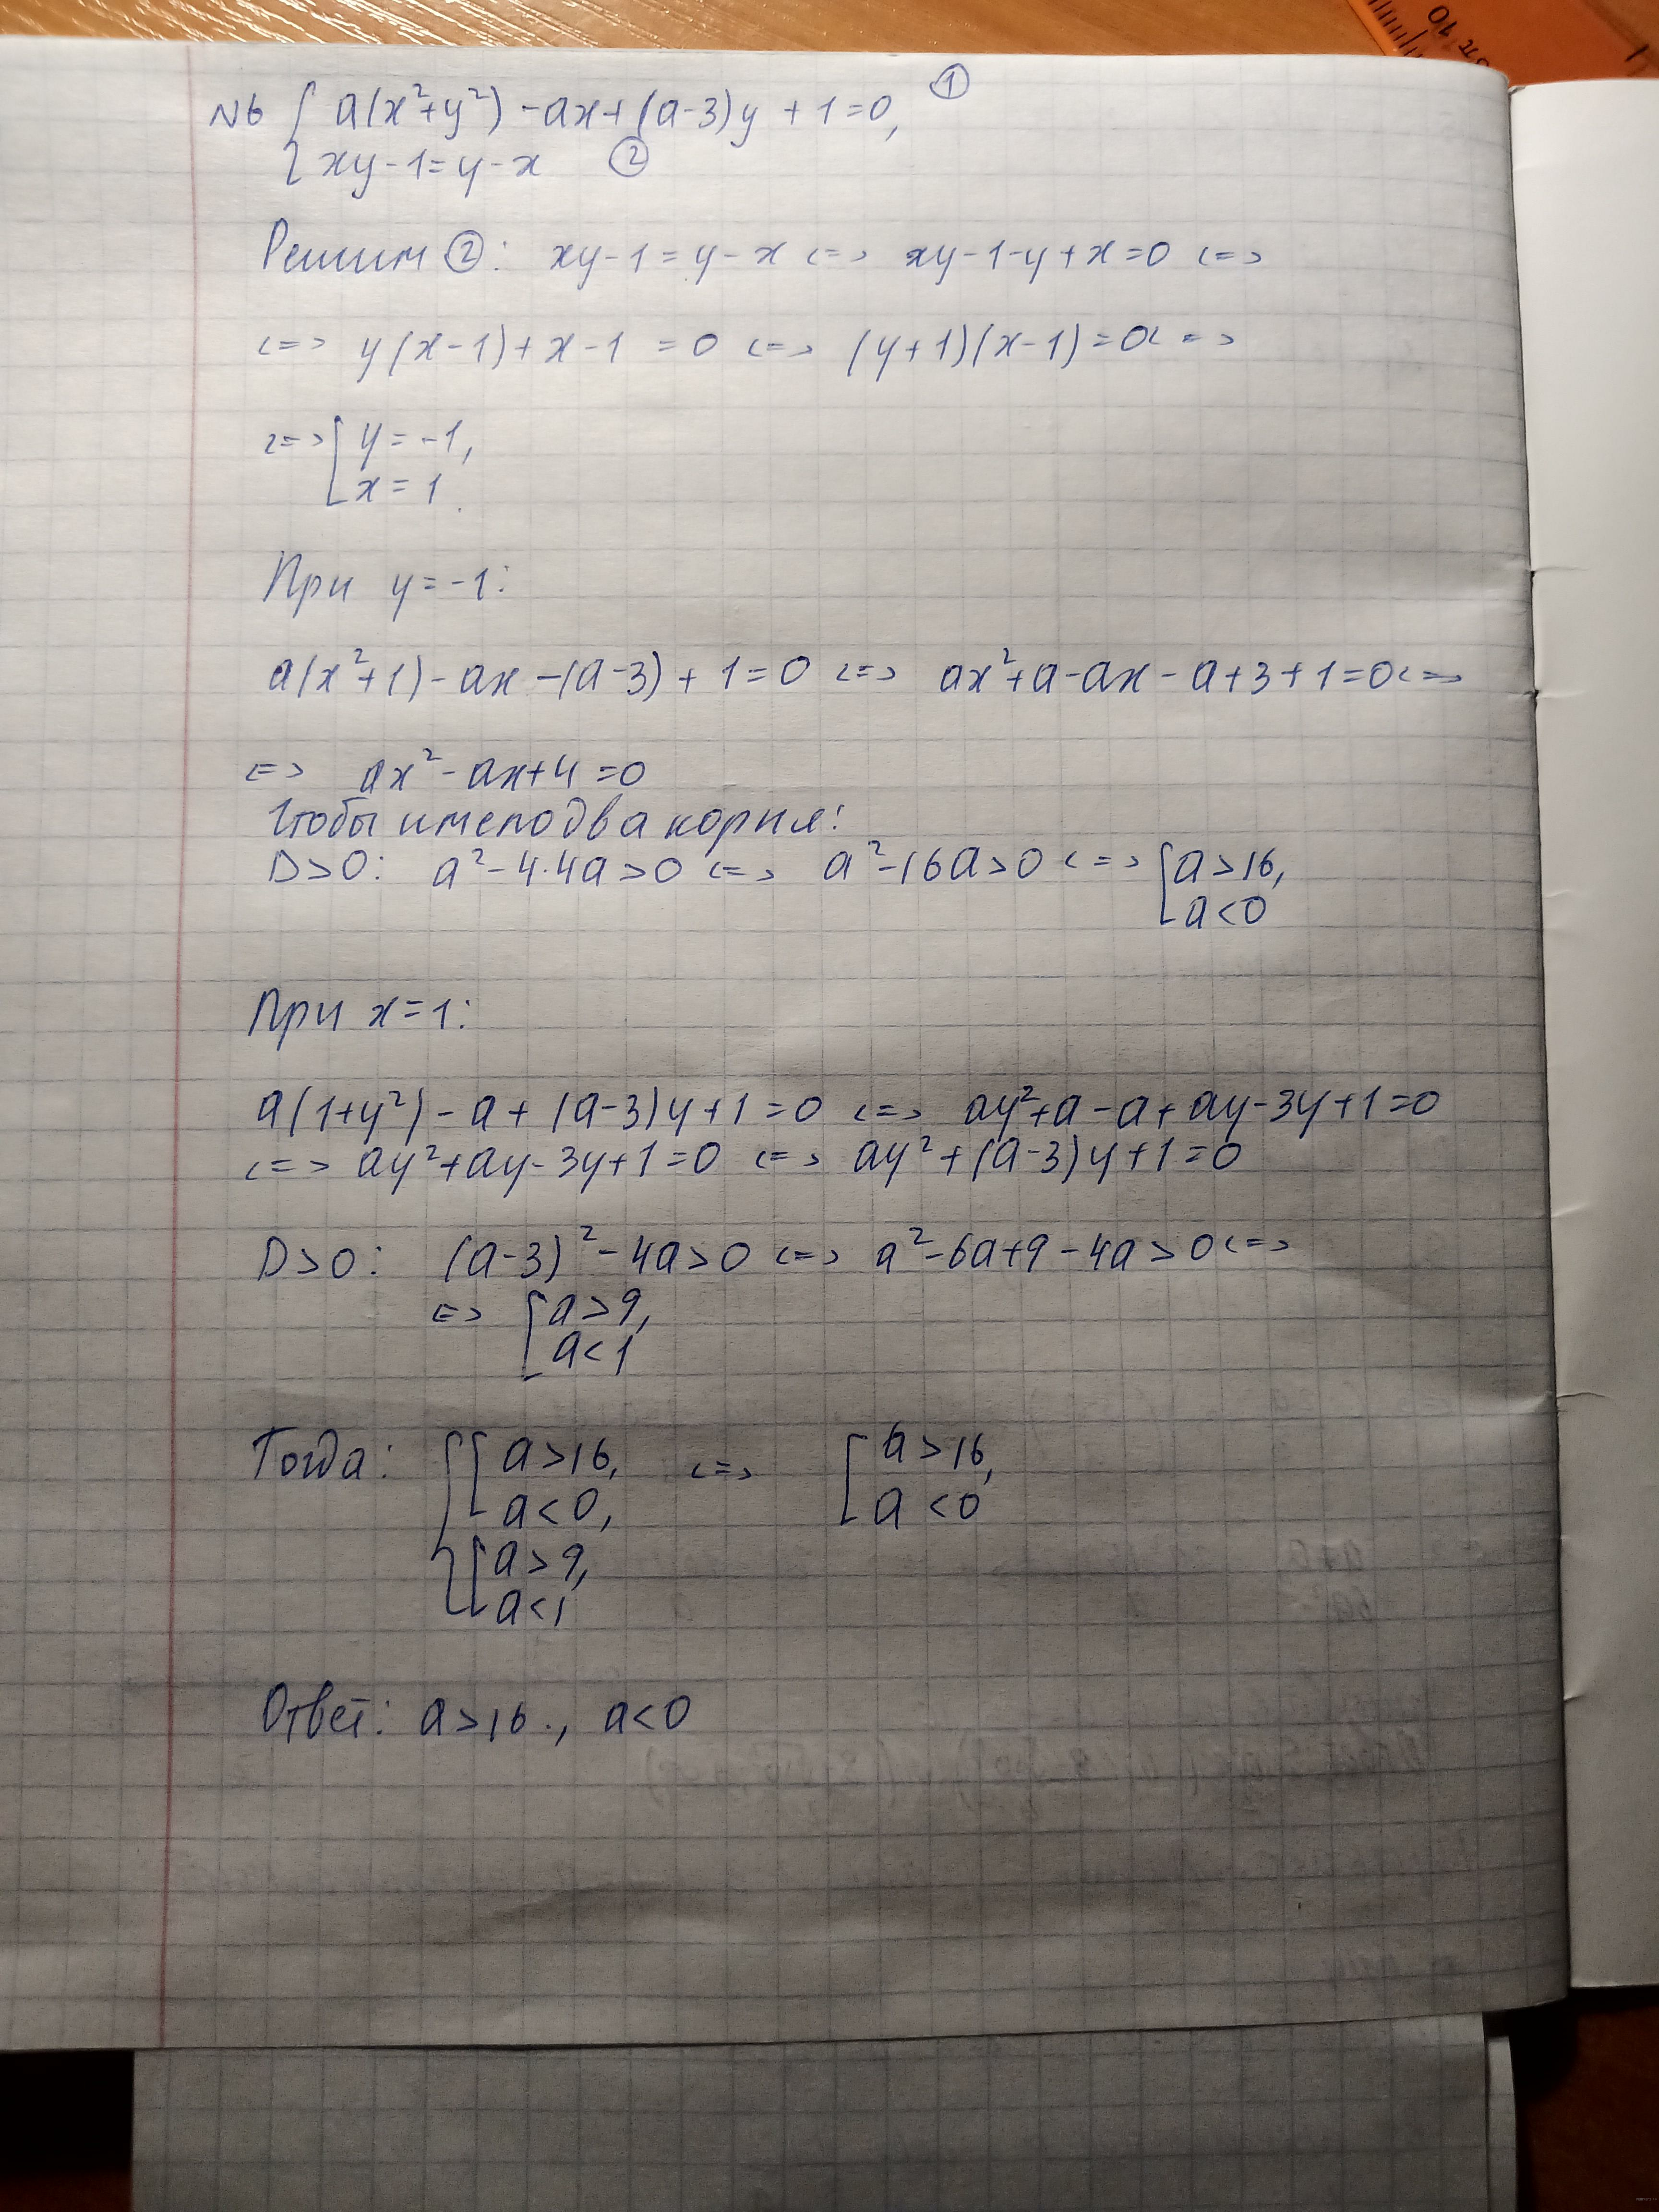 N6 { a(x²+y²) - ax + (a-3)y + 1 = 0, ①
{ xy - 1 = y - x ②
Решим ②: xy - 1 = y - x <=> xy - 1 - y + x = 0 <=>
<=> y(x-1) + x - 1 = 0 <=> (y+1)(x-1) = 0 <=>
<=> [ y = -1,
x = 1.
При y = -1:
a(x²+1) - ax - (a-3) + 1 = 0 <=> ax² + a - ax - a + 3 + 1 = 0 <=>
<=> ax² - ax + 4 = 0
Чтобы имело два корня:
D>0: a² - 4·4a > 0 <=> a² - 16a > 0 <=> [ a > 16,
a < 0
При x = 1:
a(1+y²) - a + (a-3)y + 1 = 0 <=> ay² + a - a + ay - 3y + 1 = 0
<=> ay² + ay - 3y + 1 = 0 <=> ay² + (a-3)y + 1 = 0
D>0: (a-3)² - 4a > 0 <=> a² - 6a + 9 - 4a > 0 <=>
<=> [ a > 9,
a < 1
Тогда: { [ a > 16, <=> [ a > 16,
a < 0, a < 0
[ a > 9,
a < 1
Ответ: a > 16., a < 0